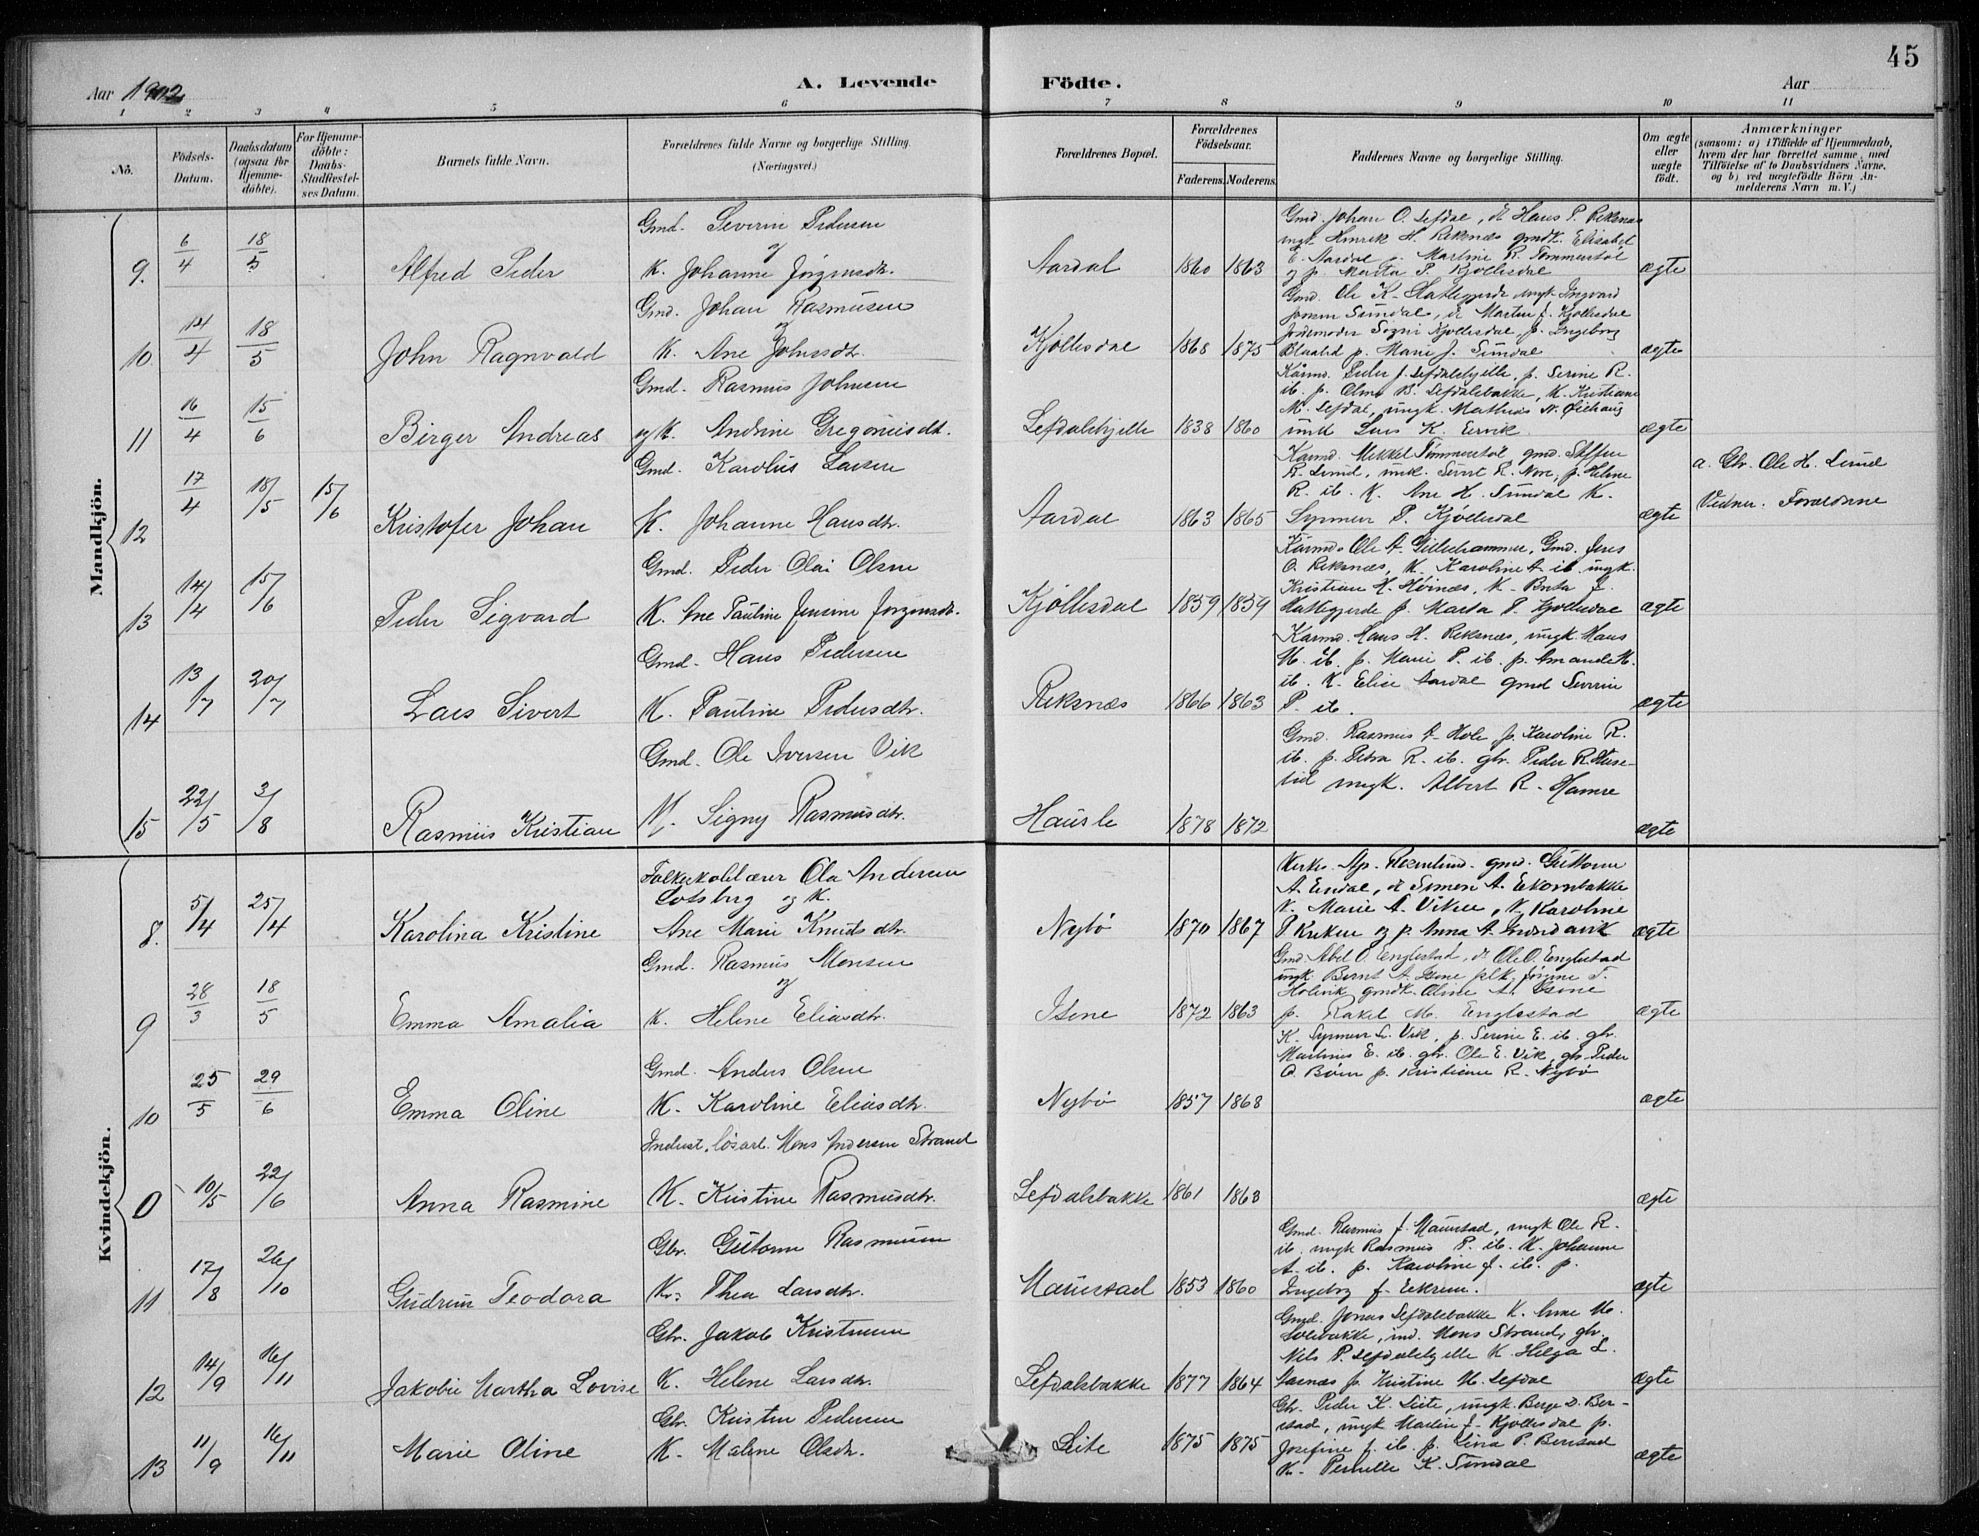 45
Aar 1902
A. Levende Födte.
Aar
1 2 3 4 5 6 7 8 9 10 11
No.
Födsels-Datum.
Daabsdatum (ogsaa for Hjemme-döbte).
For Hjemme-döbte: Daabs-Stadfæstel-ses Datum.
Barnets fulde Navn.
Forældrenes fulde Navne og borgerlige Stilling. (Næringsvei.)
Forældrenes Bopæl.
Forældrenes Födselsaar.
Faderens. Moderens.
Faddernes Navne og borgerlige Stilling.
Om ægte eller uægte födt.
Anmærkninger
(saasom: a) i Tilfælde af Hjemmedaab,
hvem der har forrettet samme, med
Tilföielse af to Daabsvidners Navne,
og b) ved uægtefödte Börn An-
melderens Navn m. V.)
Mandkjön.
9. 6/4 18/5 Alfred Peder
Gmd. Severin Pedersen
og
K. Johanne Jørgensdtr.
Aardal 1860 1863
Gmd. Johan O. Lefdal, do Hans P. Reksnæs
ungk Henrik H. Reksnæs gmdk. Elisabet
E. Aardal p. Martine R. Tømmerstøl
og p. Marta P. Kjøllesdal
ægte
10. 14/4 18/5 John Ragnvald
Gmd. Johan Rasmusen
og
K. Ane Johnsdtr.
Kjøllesdal 1868 1875
Gmd. Ole K. Hatlegjerde ungk. Ingvard
Sundal, do Martin J. Kjøllesdal
Jordemoder Sogni Kjøllesdal, p. Ingeborg
Blaalid p. Marie J. Sundal
ægte
11 16/4 15/6 Birger Andreas
Gmd. Rasmus Johnsen
og K. Andrine Gregoriusdtr.
Lefdalshjelle 1838 1860
Kaarmd. Peder J. Lefdalshjelle, p. Serine R.
ib. p. Oline B. Lefdalsbakke, K. Kristiane
M. Lefdal, ungk. Mathias N. Øiehaug
ungk Lars K. Ervik
ægte
12 17/4 18/5 15/6 Kristofer Johan
Gmd. Karolus Larsen
K. Johanne Hansdtr.
Aardal 1863 1865
Kaarmd. Mikkel Tømmerstøl gmd. Steffen
R. Lund, ungk. Sivert R. Nore, p. Helene
R. ib. K. Ane H. Sundal K.
Synneve P. Kjøllesdal
ægte
a. Gbr. Ole H. Lund
Vidner. Forældrene
13 14/4 15/6 Peder Sigvard
Gmd. Peder Olai Olsen
K. Ane Pauline Jensine Jørgensdtr.
Kjøllesdal 1859 1859
Kaarmd. Ole A. Gillehammer, Gmd. Jens
O. Reksnæs, K. Karoline A. ib. ungk.
Kristian H. Høinæs, K. Brita J.
Hatlegjerde p. Marta P. Kjøllesdal
ægte
14 13/7 20/7 Lars Sivert
Gmd. Hans Pedersen
K. Pauline Pedersdtr.
Reksnæs 1866 1863
Kaarmd. Hans H. Reksnæs, ungk Hans
M. ib. p. Marie P. ib. p. Amanda M.
ib. K. Elise Aardal gmd Severin
P. ib.
ægte
15 22/5 3/8 Rasmus Kristian
Gmd. Ole Iversen Vik
K. Signy Rasmusdtr.
Hausle 1878 1872
Gmd. Rasmus A. Hole p. Karoline R.
ib. p. Petra R. ib. gbr. Peder R. Huse-
lid ungk. Albert R. Hamre
ægte
Kvindekjön.
8. 5/4 25/4 Karolina Kristine
Folkeskolelærer Ola Andersen
Lotsberg og K.
Ane Marie Knudsdtr.
Nybø 1870 1867
Kirkes. Ap. Rosenlund. gmd. Guttorm
A. Endal, do Simon A. Ekornbakke
K. Marie A. Viken, K. Karoline
P Kirken og p. Anna A. Indredavik
ægte
9 28/3 18/5 Emma Amalia
Gmd. Rasmus Monsen
og
K. Helene Eliasdtr.
Isene 1872 1863
Gmd. Abel O. Englestad, do Ole O. Englestad
ungk. Bernt A. Isene plk. Jørgine T.
Holevik gmdk. Oline A. Isene
p. Rakel M. Englestad
ægte
10 25/5 29/6 Emma Oline
Gmd. Anders Olsen
K. Karoline Eliasdtr.
Nybø 1857 1868
K. Synneve L. Vik, p. Serine E. ib. gbr.
Martinus E. ib. gbr. Ole E. Vik, gbr. Peder
O. Bøen p. Kristiane R. Nybø
ægte
0 10/5 22/6 Anna Rasmine
Indust. løsarb. Mons Andersen Strand
K. Kristine Rasmusdtr.
Lefdalsbakke 1861 1863
ægte
11 17/8 26/10 Gudrun Teodora
Gbr. Guttorm Rasmusen
K. Thea Larsdtr.
Maurstad 1853 1860
Gmd. Rasmus J. Maurstad, ungk Ole R.
ib. ungk Rasmus P. ib. K. Johanne
A. ib. p. Karoline J. ib. p.
Ingeborg J. Eekrem.
ægte
12 14/9 16/11 Jakobie Martha Lovise
Gbr. Jakob Kristensen
K. Helene Larsdtr.
Lefdalsbakke 1877 1864
Gmd. Jonas Lefdalsbakke K. Anne M.
Lolebakke, ind. Mons Strand, gbr.
Nils P. Lefdalshjelle K. Helga L.
p. Kristine M. Lefdal
ægte
13 11/9 16/11 Marie Oline
Gbr. Kristen Pedersen
K. Malene Olsdtr.
Leite 1875 1875
Gbr. Peder K. Leite, ungk. Berge D. Ber-
stad, ungk Martin J. Kjøllesdal p.
Josefine J. ib. p. Lina P. Berstad
K. Pernelle K. Sundal
ægte